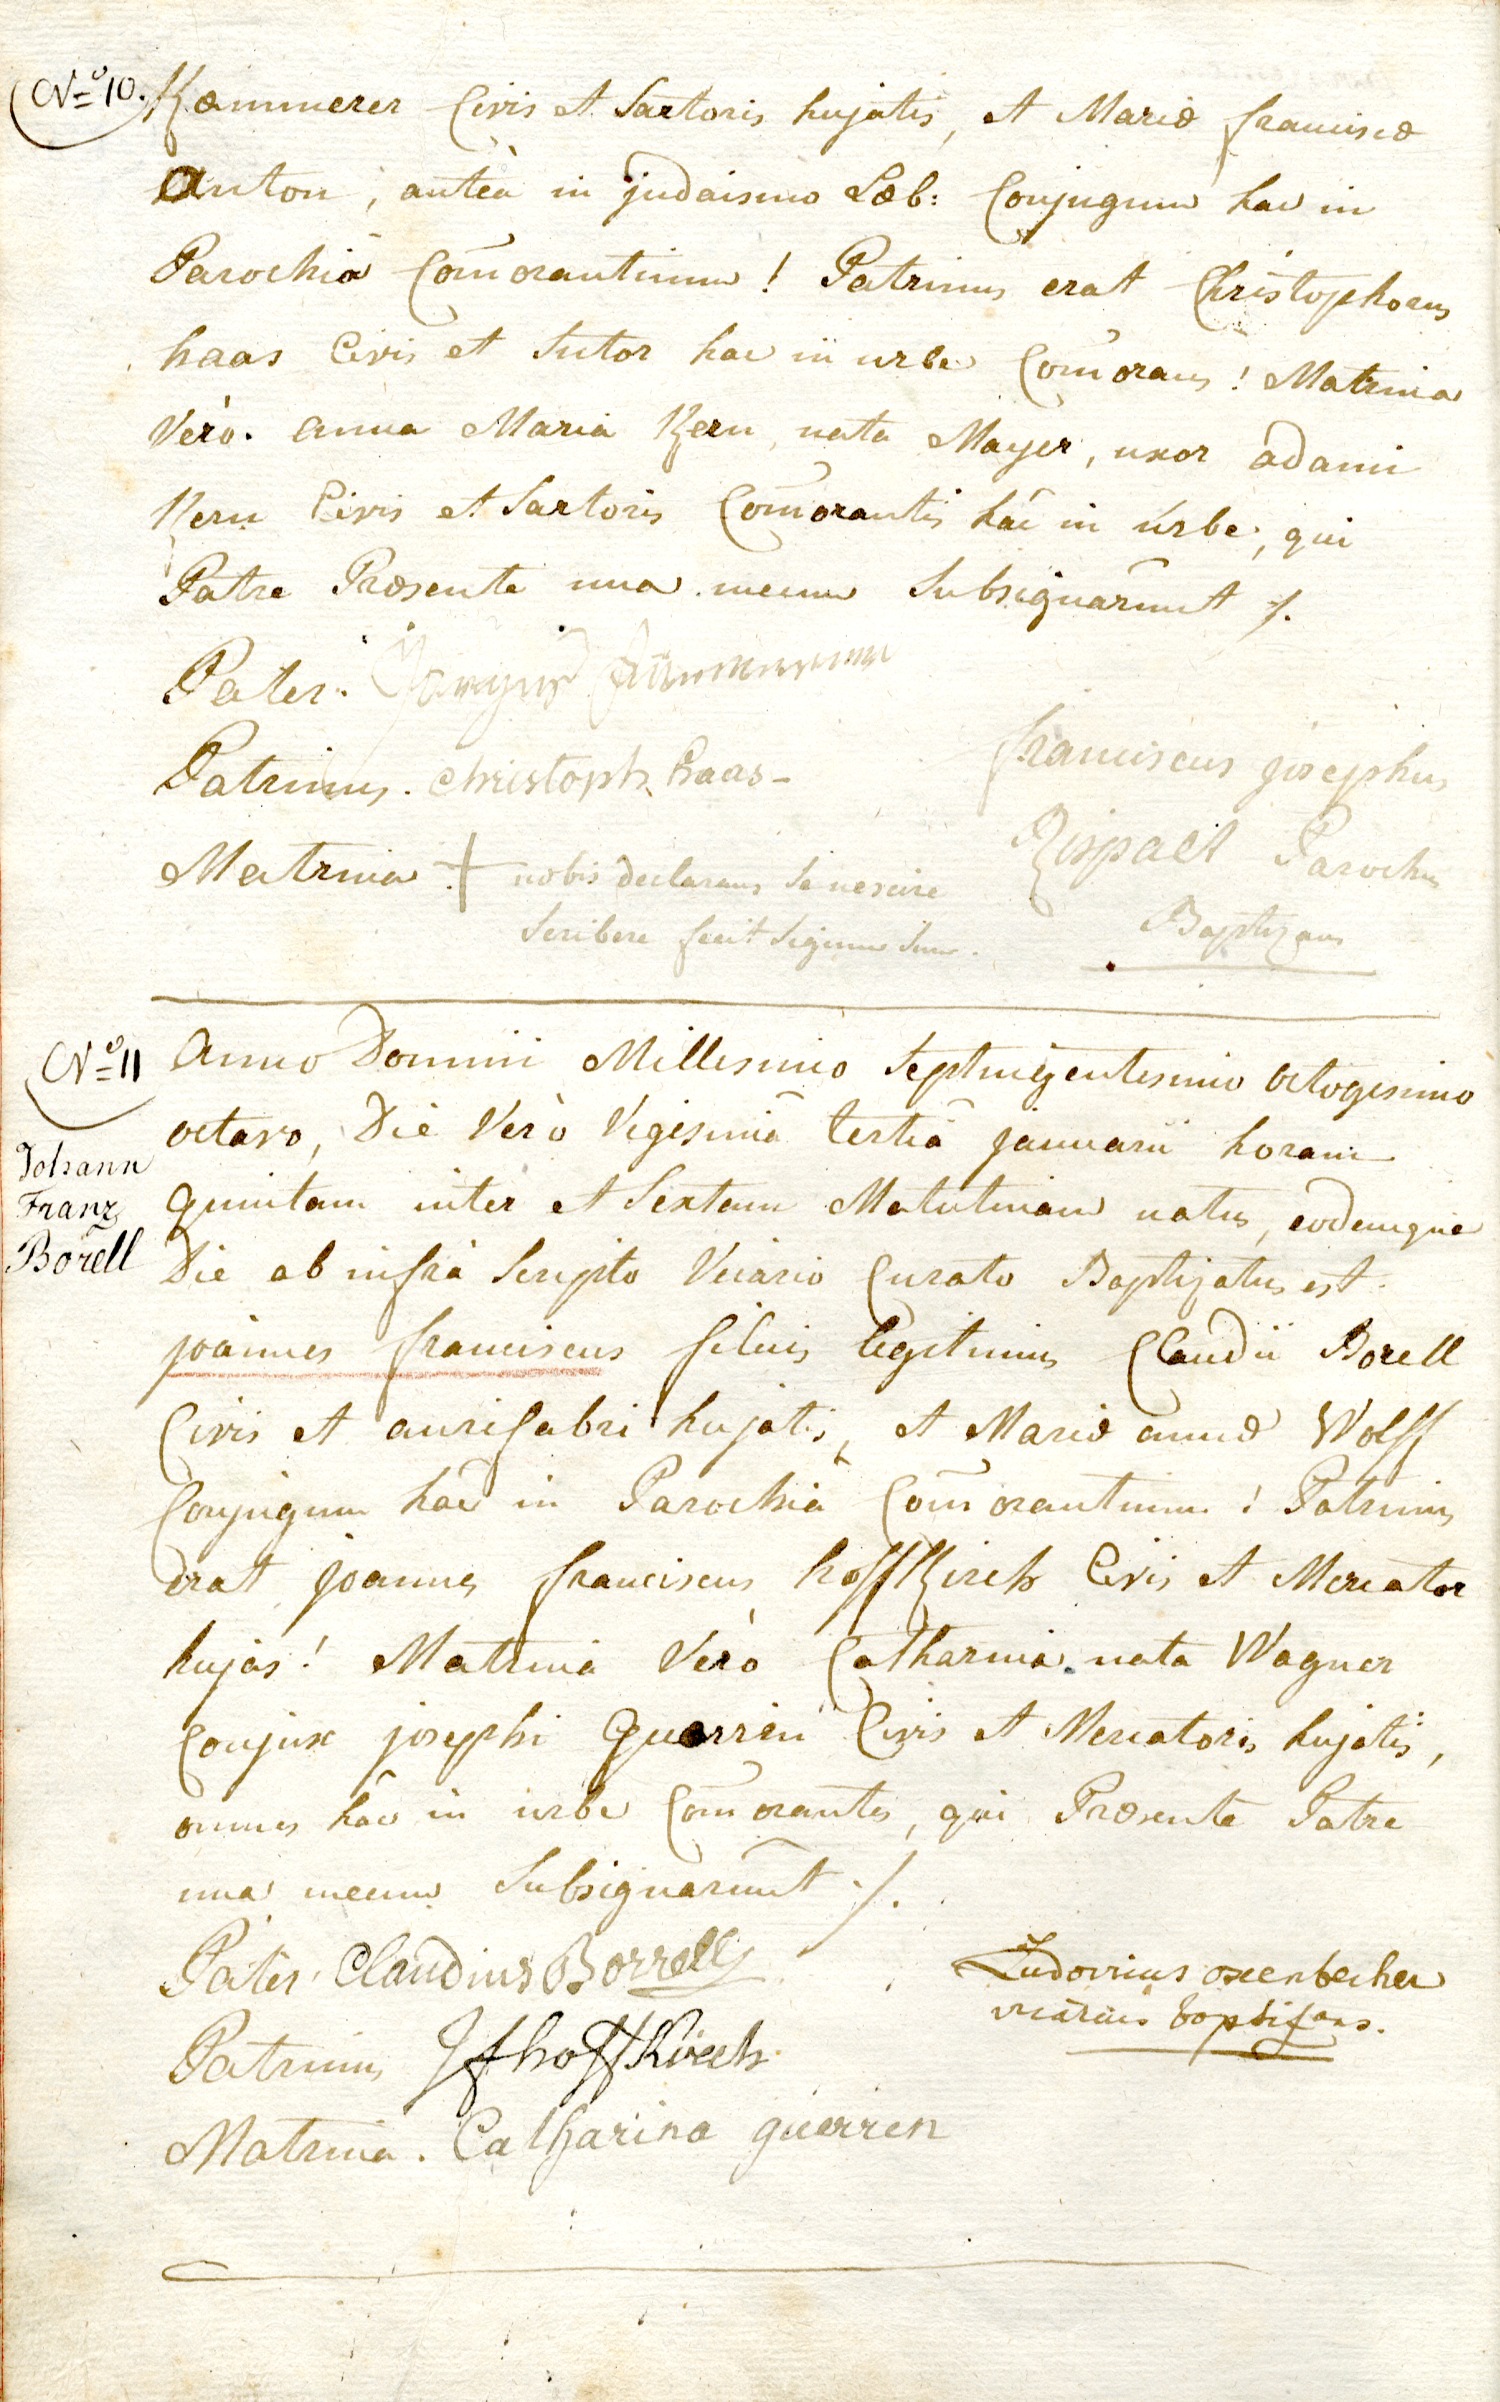 No 10. Kæmmerer Civis et Sartoris hujatis, et Mariæ franciscæ
Anton, anteà in judaismo Læb: Conjugum hac in
Parochiâ Com̄orantium! Patrinus erat Christophorus
haas Civis et Sutor hac in urbe Com̄orans! Matrina
Verò. anna Maria Kern, nata Mayer, uxor adami
Kern Civis et Sartoris Com̄orantis hâc in urbe, qui
Patre Præsente una mecum Subsignarunt ./.
Pater.
Patrinus. Christoph haas-
Matrina + nobis declarans Se nescire
Scribere fecit Signum Suum.
franciscus josephus
Parochus
Baptizans
No 11 Anno Domini Millesimo Septuigentesimo octogesimo
octavo, Die Verò Vigesimâ tertiâ januarii horam
Johann Franz Borell
quintam inter et Sextam Matutinam natus, eodemque
Die ab infrà Scripto Vicario Curato Baptizatus est
joannes franciscus filius legitimus Claudii Borell
Civis et aurifabri hujatis, et Mariæ annæ Wolff
Conjugum hâc in Parochiâ Com̄orantium! Patrinus
erat joannes franciscus hoffKirch Civis et Mercator
hujas! Matrina Verò Catharina. nata Wagner
Conjux josephi Guerrin Civis et Mercatoris hujatis,
omnes hâc in urbe Com̄orantes, qui Præsente Patre
una mecum Subsignarunt ./.
Pater. Claudius Borrell
Patrinus JfhoffKirch
Matrina. Catharina guerrien
Ludovicus oxenbecher
vicarius baptizans.